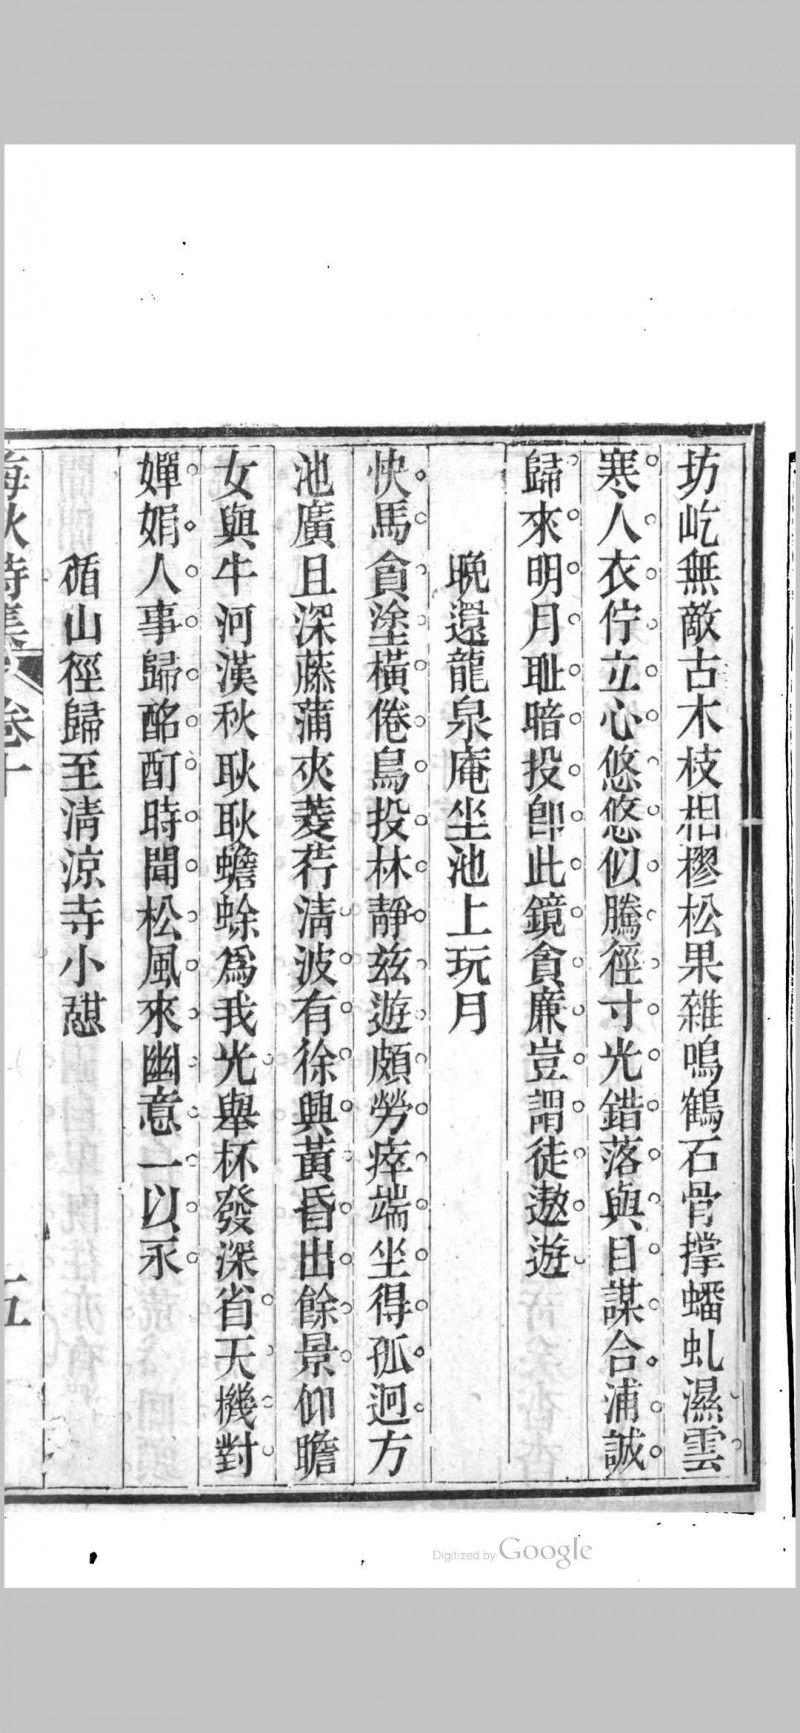 坊屹無敵古木枝相樛松果雜鳴鶴石骨撑蟠虬濕雲
寒人衣佇立心悠悠似騰徑寸光錯落與目謀合浦誠
歸來明月耻暗投卽此鏡貪廉豈謂徒遨遊
晚還龍泉庵坐池上玩月
快馬貪塗橫倦鳥投林靜兹遊頗勞瘁端坐得孤迥方
池廣且深藤蒲夾菱荇淸波有徐興黃昏出餘景仰瞻
女與牛河漢秋耿耿蟾蜍爲我光舉杯發深省天機對
嬋娟人事歸酩酊時聞松風來幽意一以永
循山徑歸至淸凉寺小憇
海秋詩集 卷十 五
Digitized by Google